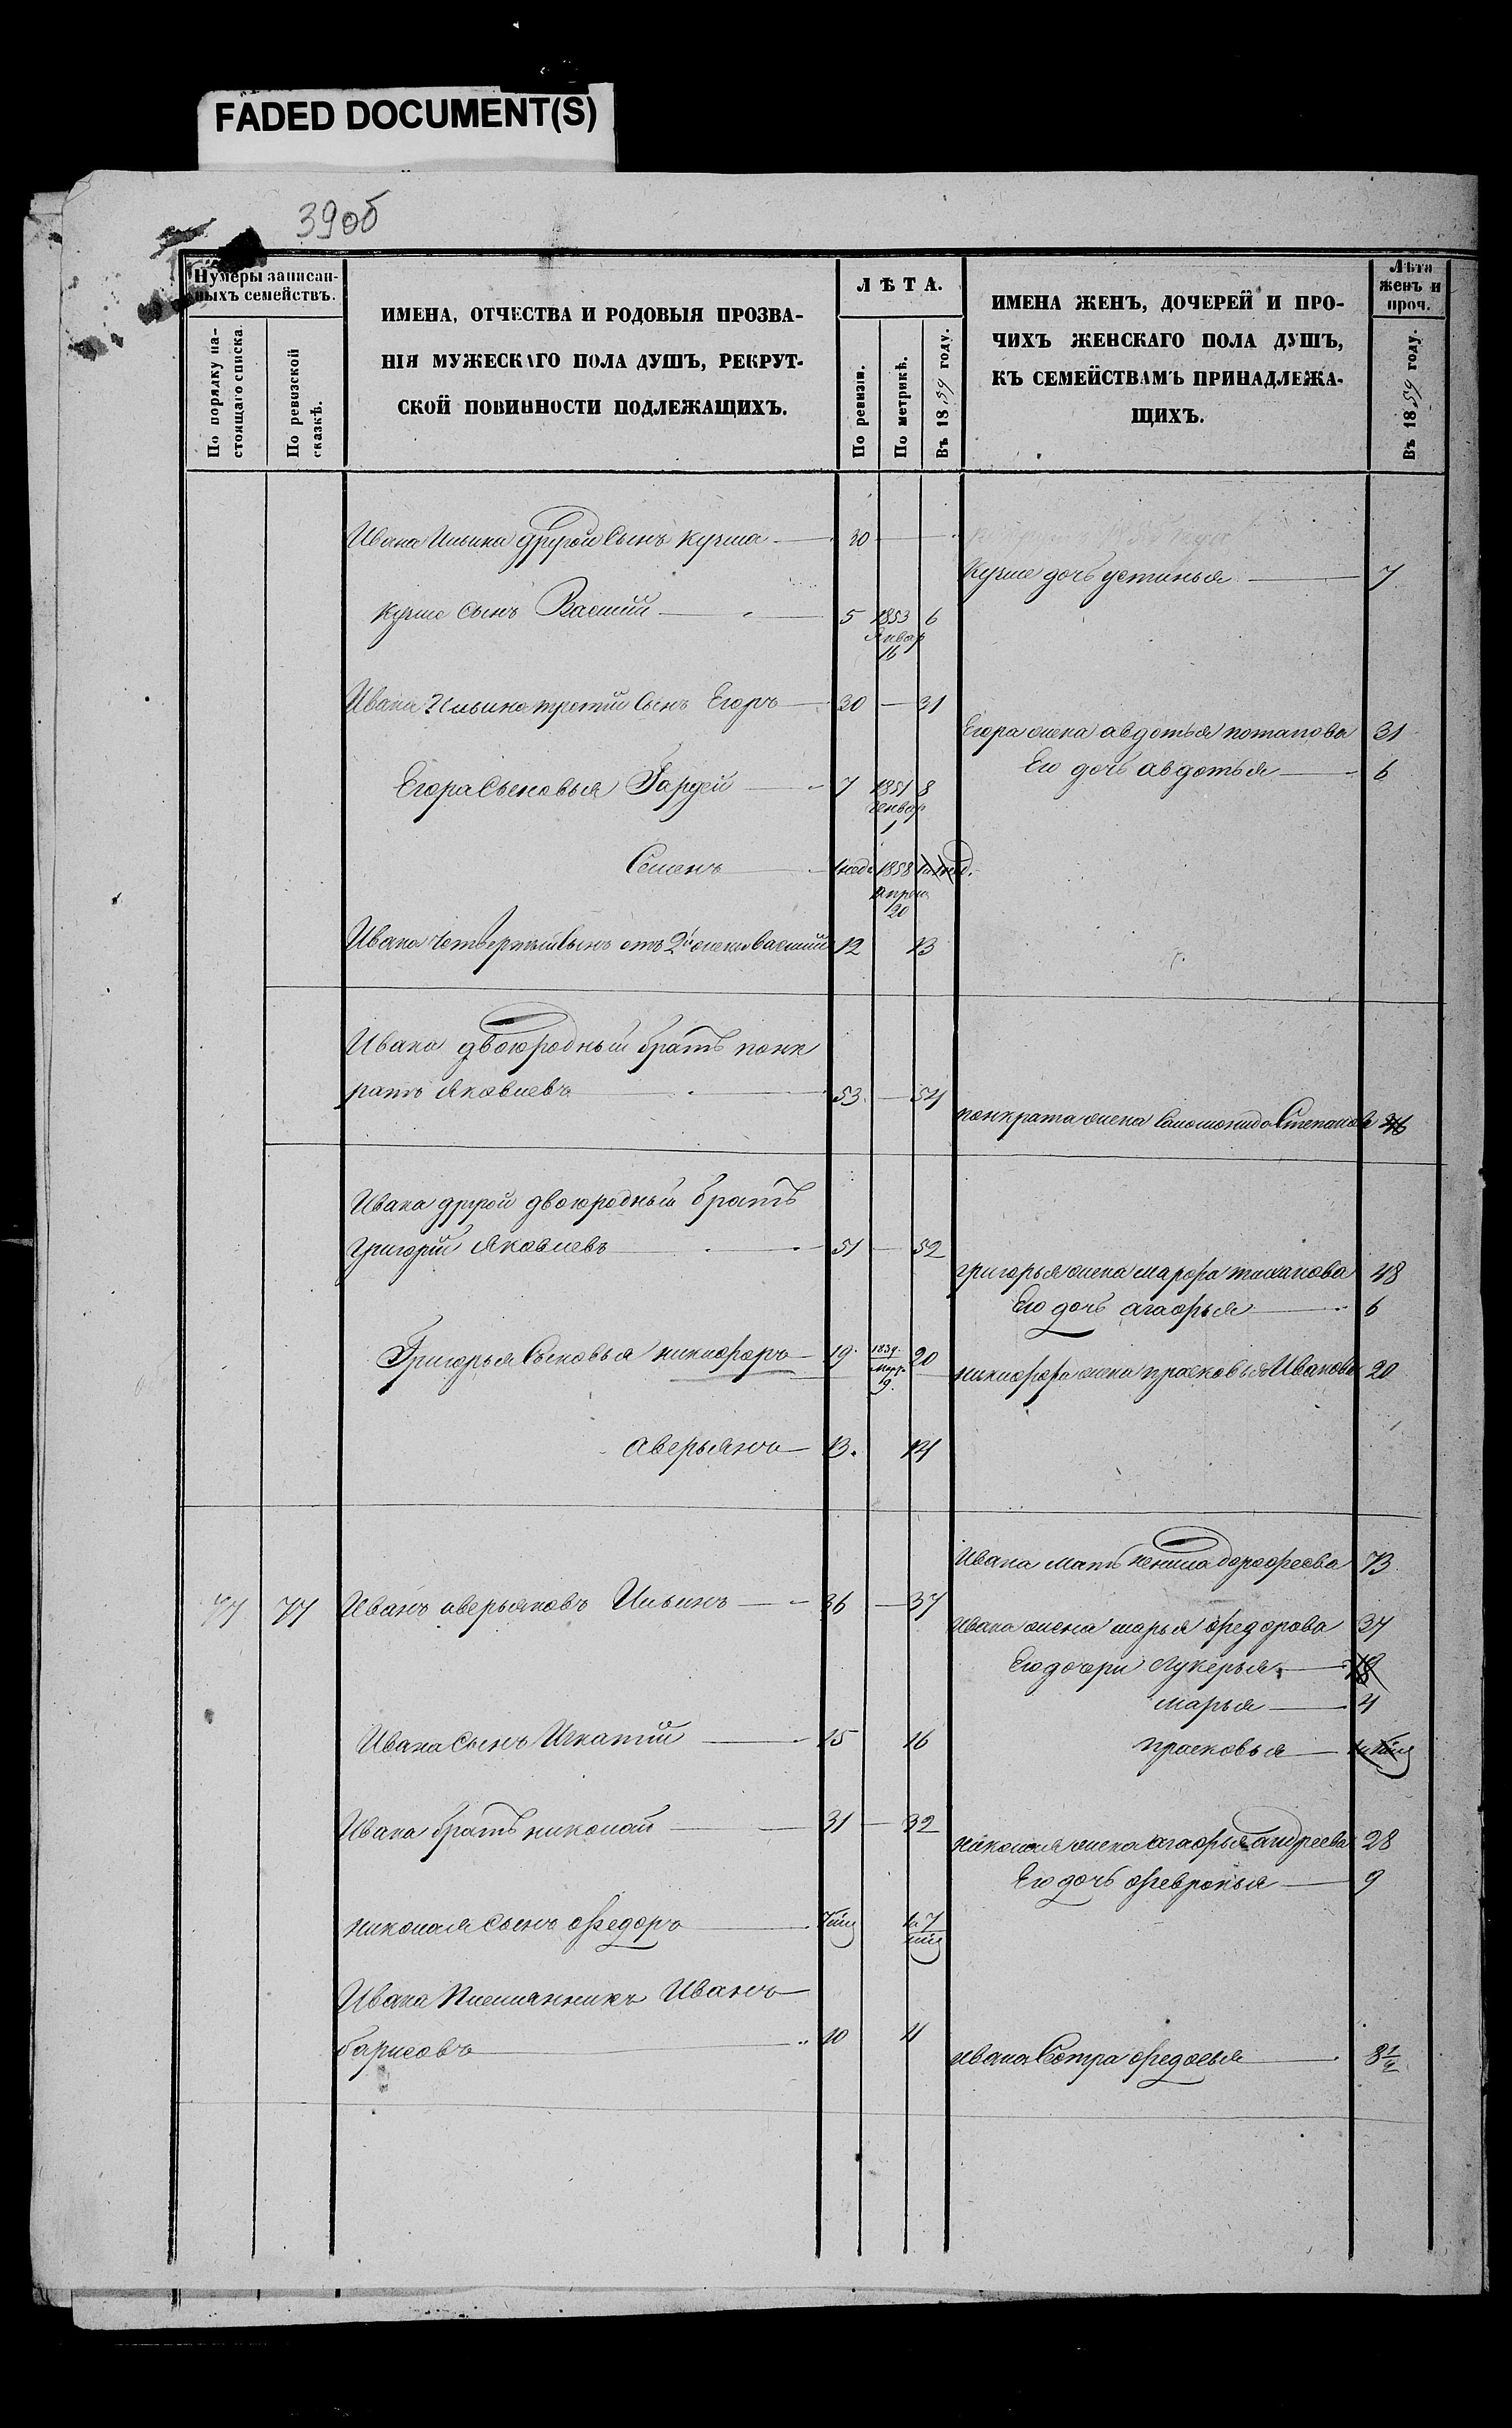 FADED DOCUMENT(S)
39об
Нумеры записан-
ныхъ семействъ.
По порядку на-
стоящаго списка.
По ревизской
сказкѣ.
ИМЕНА, ОТЧЕСТВА И РОДОВЫЯ ПРОЗВА-
НІЯ МУЖЕСКАГО ПОЛА ДУШЪ, РЕКРУТ-
СКОЙ ПОВИННОСТИ ПОДЛЕЖАЩИХЪ.
ЛѢТА.
По ревизіи.
По метрикѣ.
Въ 1859 году.
ИМЕНА ЖЕНЪ, ДОЧЕРЕЙ И ПРО-
ЧИХЪ ЖЕНСКАГО ПОЛА ДУШЪ,
КЪ СЕМЕЙСТВАМЪ ПРИНАДЛЕЖА-
ЩИХЪ.
Лѣта
женъ и
проч.
Въ 1859 году.
Ивана Ильина другой Сынъ кузма — 30 —
Кузме дочь устинья — 7
кузме сынъ Василий — 5 1853 6
Январ
16
Ивана Ильина третий Сынъ Егоръ — 30 — 31
Егора жена авдотья потапова 31
Его дочь авдотья — 6
Егора Сыновья Гардей — 7 1851 8
Генвар
1
Семенъ — 1нед. 1858
апреля
20
Ивана четвертый Сынъ отъ 2й жены василий 12 13
Ивана двоюродный братъ понк
ратъ Яковлевъ — 53 — 54
понкрата жена Соломонида Степанова
Ивана другой двоюродный братъ
григорий Яковлевъ — 51 — 52
григорья жена марфа тиханова 48
Его дочь агафья — 6
Григорья Сыновья никифоръ — 19 1839. 20
Мар.
19.
никифора жена прасковья Иванова 20
аверьянъ — 13. 14
Ивана мать ненила дорофеева 73
77 77 Иванъ аверьяновъ Ильинъ — 36 — 37
Ивана жена марья федорова 37
Его дочери Лукерья — 18
марья — 4
Ивана Сынъ Игнатий — 15 16
прасковья —
Ивана братъ николай — 31 — 32
николая жена агафья андреева 28
Его дочь февронья — 9
николая Сынъ федоръ — 7 мц 1 7
мц
Ивана Племянникъ Иванъ
барисовъ — 10 11
Ивана Сестра федосья — 8 1/2